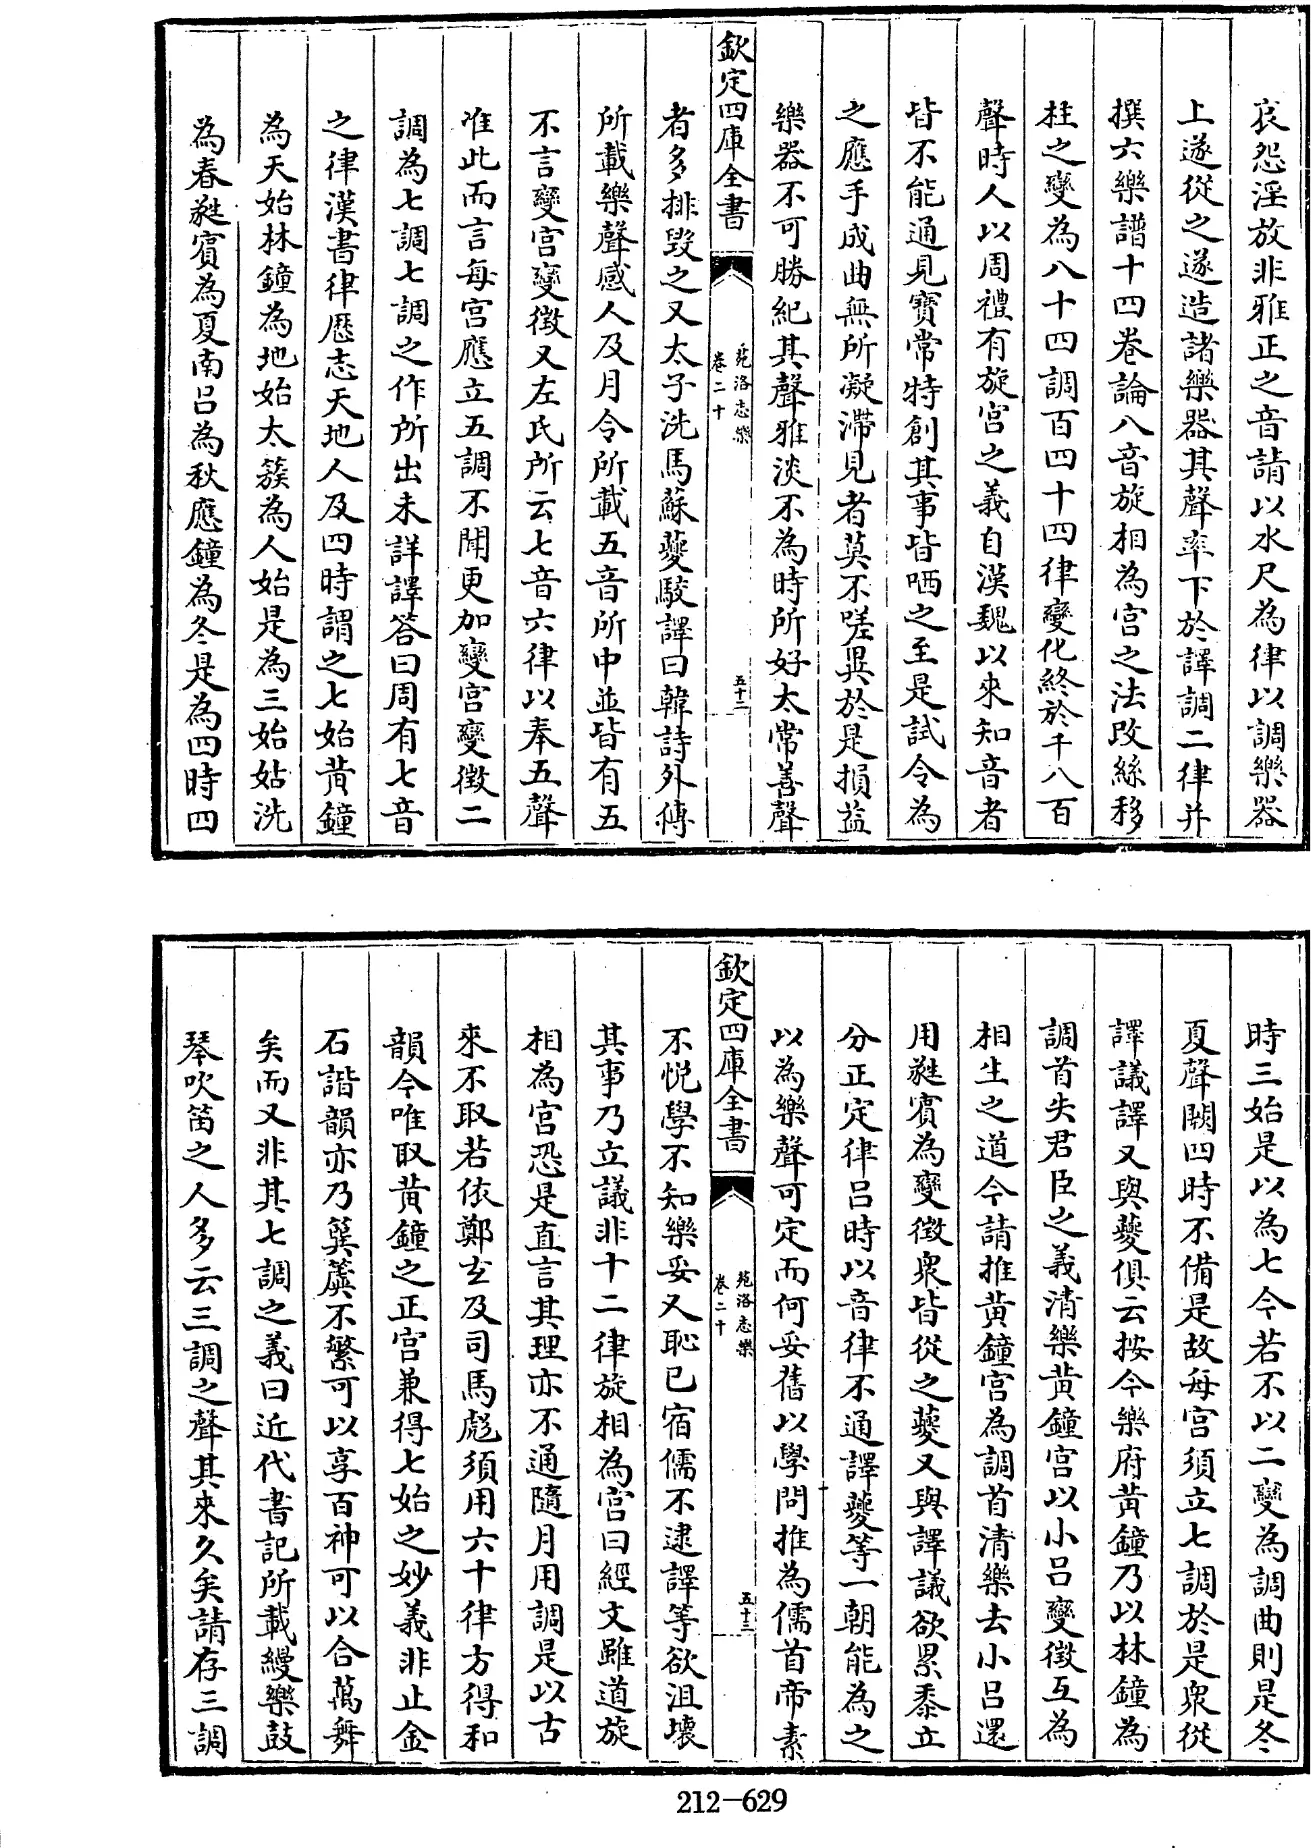 哀怨淫放非雅正之音請以水尺為律以調樂器
上遂從之遂造諸樂器其聲率下於譯調二律并
撰六樂譜十四卷論八音旋相為宮之法改絲移
柱之變為八十四調百四十四律變化終於千八百
聲時人以周禮有旋宮之義自漢魏以來知音者
皆不能通見寶常特創其事皆哂之至是試令為
之應手成曲無所凝滯見者莫不嗟異於是損益
樂器不可勝紀其聲雅淡不為時所好太常善聲
欽定四庫全書
苑洛志樂
卷二十
五十二
者多排毀之又太子洗馬蘇夔駮譯曰韓詩外傳
所載樂聲感人及月令所載五音所中並皆有五
不言變宮變徵又左氏所云七音六律以奉五聲
唯此而言每宮應立五調不聞更加變宮變徵二
調為七調七調之作所出未詳譯答曰周有七音
之律漢書律厯志天地人及四時謂之七始黃鐘
為天始林鐘為地始太簇為人始是為三始姑洗
為春蕤賓為夏南呂為秋應鐘為冬是為四時四
時三始是以為七今若不以二變為調曲則是冬
夏聲闕四時不備是故每宮須立七調於是衆從
譯議譯又與夔俱云按今樂府黃鐘乃以林鐘為
調首失君臣之義清樂黃鐘宮以小呂變徵互為
相生之道今請推黃鐘宮為調首清樂去小呂還
用蕤賓為變徵衆皆從之夔又與譯議欲累黍立
分正定律呂時以音律不通譯夔等一朝能為之
以為樂聲可定而何妥舊以學問推為儒首帝素
欽定四庫全書
苑洛志樂
卷二十
五十三
不悅學不知樂妥又恥已宿儒不逮譯等欲沮壞
其事乃立議非十二律旋相為宮曰經文雖道旋
相為宮恐是直言其理亦不通隨月用調是以古
來不取若依鄭玄及司馬彪須用六十律方得和
韻今唯取黃鐘之正宮兼得七始之妙義非止金
石諧韻亦乃簨簴不繁可以享百神可以合萬舞
矣而又非其七調之義曰近代書記所載縵樂鼓
琴吹笛之人多云三調之聲其來久矣請存三調
212—629